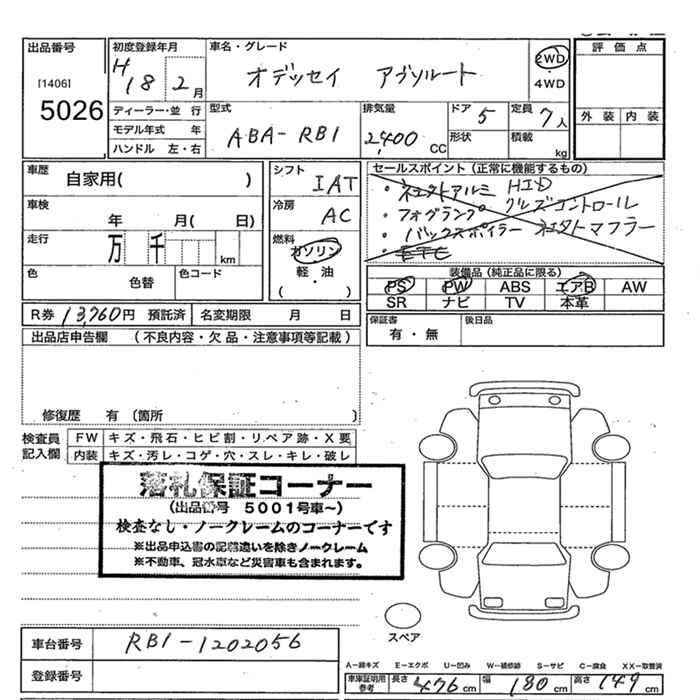 出品番号
[1406]
5026
初度登録年月
H18 2月
車名・グレード
オデッセイ アブソルート
2WD
・
4WD
評価点
外装 内装
ディーラー・並 行
モデル年式 年
ハンドル 左・右
型式
ABA-RB1
排気量
2400 CC
ドア 5
形状
定員 7人
積載 kg
車歴
自家用( )
車検
年 月( 日)
走行
万 千 km
色
色替
色コード
シフト
IAT
冷房
AC
燃料
ガソリン
軽・油
・
( )
セールスポイント（正常に機能するもの）
・ネエクトアルミ HID
・フォグランプ クルズコントロール
・バックスポイラー ネエクトマフラー
・ETC
装備品（純正品に限る）
PS PW ABS エアB AW
SR ナビ TV 本革
R券 13,760円 預託済 名変期限 月 日
保証書
有・無
後日品
出品店申告欄 （不良内容・欠品・注意事項等記載）
修復歴 有 （箇所 ）
検査員
記入欄
FW キズ・飛石・ヒビ割・リペア跡・X要
内装 キズ・汚レ・コゲ・穴・スレ・キレ・破レ
落札保証コーナー
（出品番号 5001号車～）
検査なし・ノークレームのコーナーです
※出品申込書の記載違いを除きノークレーム
※不動車、冠水車など災害車も含まれます。
スペア
車台番号 RB1-1202056
登録番号
A－線キズ E－エクボ U－凹み W－補修跡 S－サビ C－腐食 XX－取替済
車庫証明用
参考
長さ 476 cm 幅 180 cm 高さ 149 cm